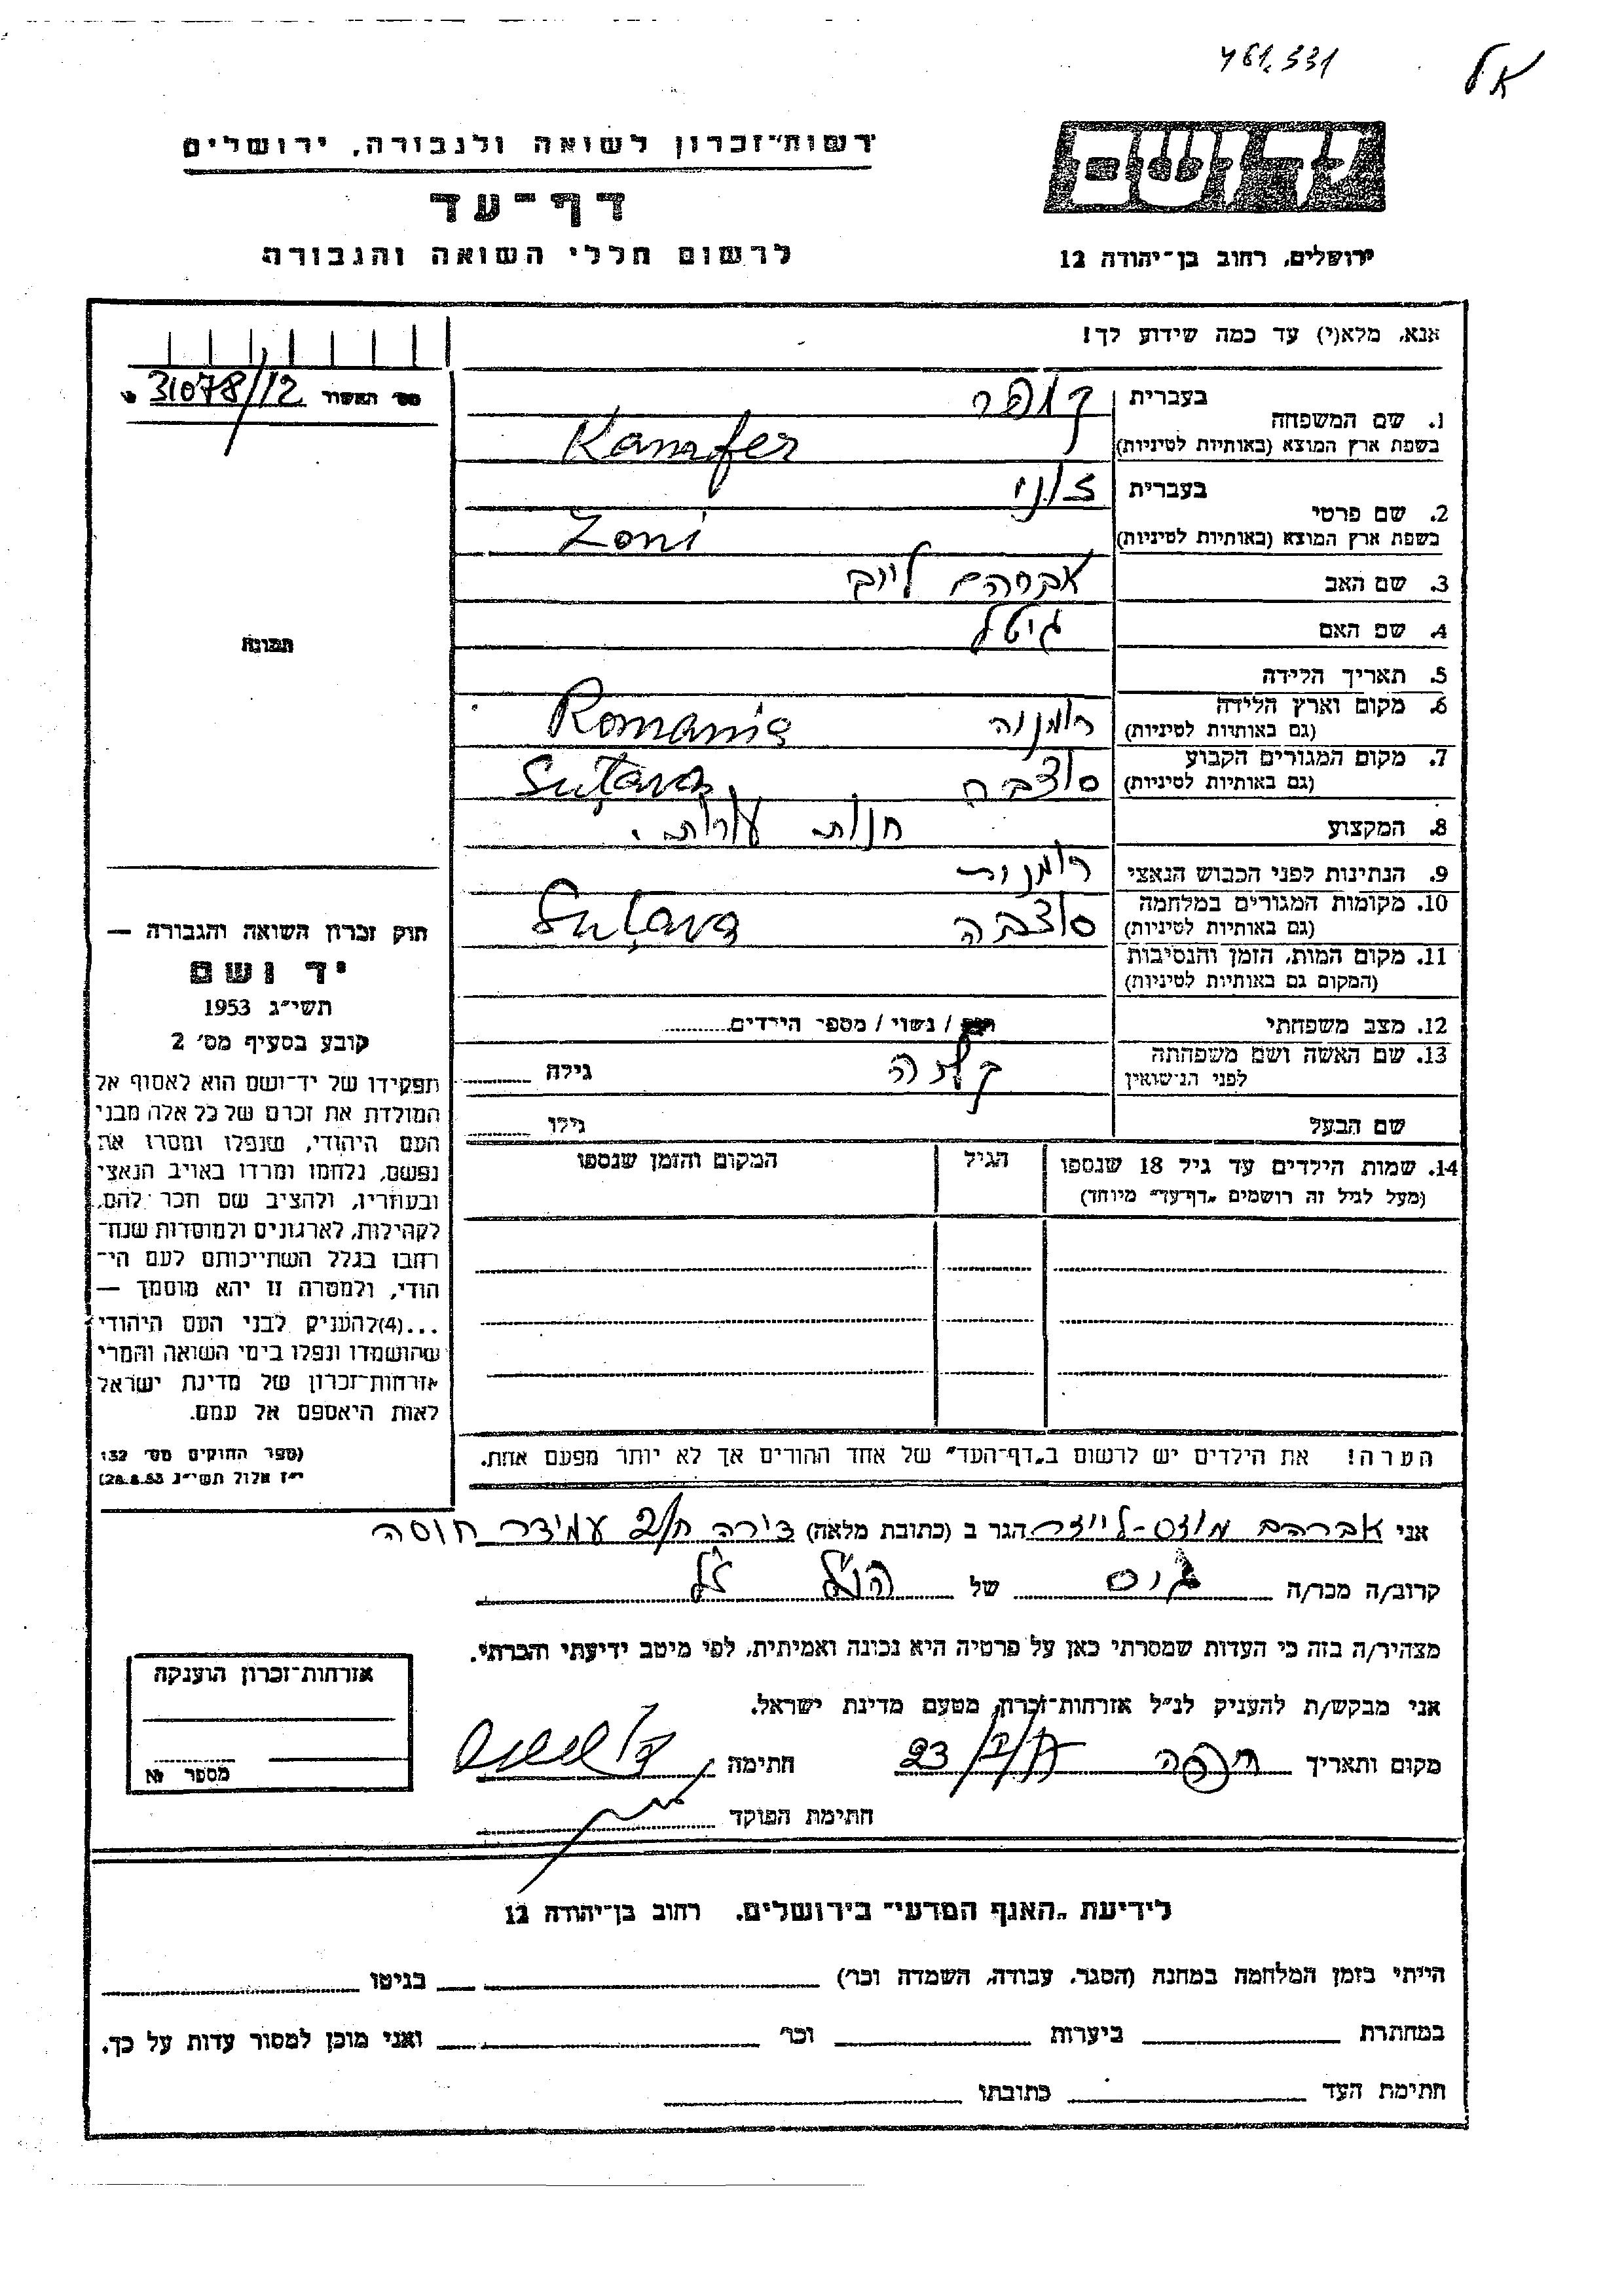 461.331
א ל
רשות־זכרון לשואה ולגבורה, ירושלים
דף־עד
לרשום חללי השואה והגבורה
יד ושם
ירושלים, רחוב בן־יהודה 12
אנא, מלא(י) עד כמה שידוע לך!
מס׳ האשור 31078/12
1. שם המשפחה
בעברית
בשפת ארץ המוצא (באותיות לטיניות) Kamfer
2. שם פרטי
בעברית זוני
בשפת ארץ המוצא (באותיות לטיניות) Zoni
3. שם האב אברהם לייב
4. שם האם גיטל
5. תאריך הלידה
6. מקום וארץ הלידה
(גם באותיות לטיניות) רומניה Romania
7. מקום המגורים הקבוע
(גם באותיות לטיניות) סוצבה Suţava
8. המקצוע חנות עורות.
9. הנתינות לפני הכבוש הנאצי רומנית
10. מקומות המגורים במלחמה
(גם באותיות לטיניות) סוצבה Suţava
11. מקום המות, הזמן והנסיבות
(המקום גם באותיות לטיניות)
12. מצב משפחתי רווק / נשוי / מספר הילדים
13. שם האשה ושם משפחתה
לפני הנישואין גילה
שם הבעל גילו
14. שמות הילדים עד גיל 18 שנספו הגיל המקום והזמן שנספו
(מעל לגיל זה רושמים „דף־עד״ מיוחד)
תמונה
חוק זכרון השואה והגבורה —
יד ושם
תשי״ג 1953
קובע בסעיף מס׳ 2
תפקידו של יד־ושם הוא לאסוף אל
המולדת את זכרם של כל אלה מבני
העם היהודי, שנפלו ומסרו את
נפשם, נלחמו ומרדו באויב הנאצי
ובעוזריו, ולהציב שם וזכר להם,
לקהילות, לארגונים ולמוסדות שנח־
רבו בגלל השתייכותם לעם הי־
הודי, ולמטרה זו יהא מוסמך —
...(4) להעניק לבני העם היהודי
שהושמדו ונפלו בימי השואה והמרי
אזרחות־זכרון של מדינת ישראל
לאות היאספם אל עמם.
(ספר החוקים מס׳ 132
י״ז אלול תשי״ג 28.8.53)
הערה! את הילדים יש לרשום ב„דף־העד״ של אחד ההורים אך לא יותר מפעם אחת.
אני אברהם הגר ב (כתובת מלאה) דירה עמידר
קרוב/ה מכר/ה גיס של הנ״ל ז״ל
מצהיר/ה בזה כי העדות שמסרתי כאן על פרטיה היא נכונה ואמיתית, לפי מיטב ידיעתי והכרתי.
אני מבקש/ת להעניק לנ״ל אזרחות־זכרון מטעם מדינת ישראל.
מקום ותאריך 23 חתימה
חתימת הפוקד
אזרחות־זכרון הוענקה
מספר
לידיעת „האגף המדעי״ בירושלים, רחוב בן־יהודה 12
הייתי בזמן המלחמה במחנה (הסגר, עבודה, השמדה וכו׳) בגיטו
במחתרת ביערות וכו׳ ואני מוכן למסור עדות על כך.
חתימת העד כתובתו